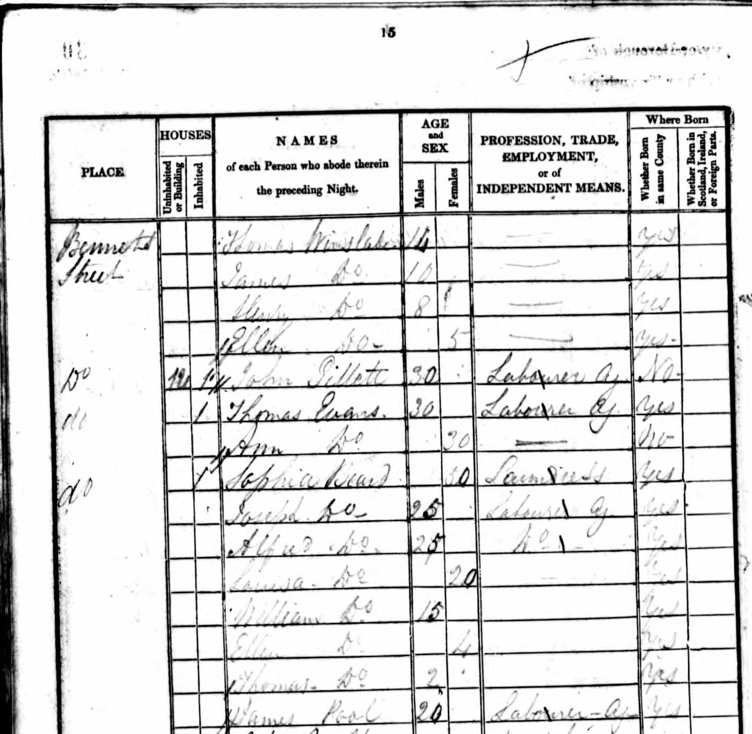 15
PLACE HOUSES Uninhabited or Building Inhabited NAMES of each Person who abode therein the preceding Night. AGE and SEX Males Females PROFESSION, TRADE, EMPLOYMENT, or of INDEPENDENT MEANS. Where Born Whether Born in same County Whether Born in Scotland, Ireland, or Foreign Parts.
Bennetts Thomas 14 — yes
Street James Do 10 — yes
Henry Do 8 — yes
Ellen Do 5 — yes
Do 1 John Gillett 30 Labourer Ag No
do 1 Thomas Evans 30 Labourer Ag yes
Ann Do 30 — No
do 1 Sophia 50 yes
Joseph Do 25 Labourer Ag yes
Alfred Do 25 Do yes
Louisa Do 20 yes
William Do 15 yes
Ellen Do 4 yes
Thomas Do 2 yes
James Pool 20 Labourer Ag yes